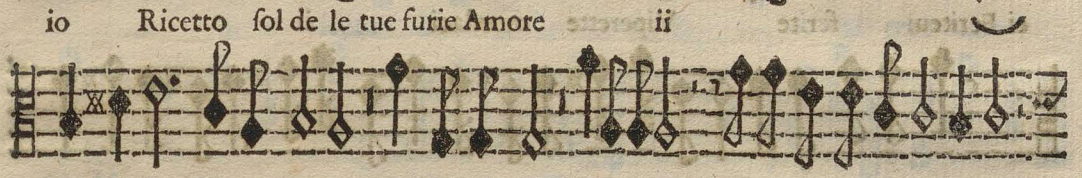 io Ricetto sol de le tue furie Amore ii